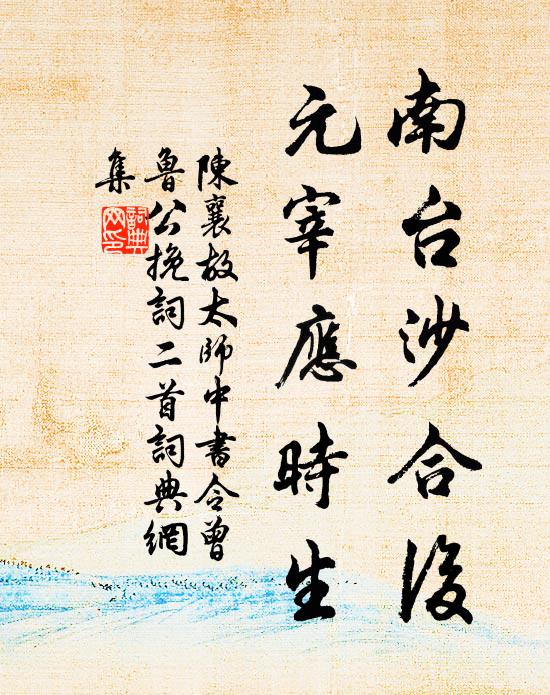 南台沙合後
元宰應時生
陳襄故太師中書令曾
魯公挽詞二首詞典網
集
詞典
网印